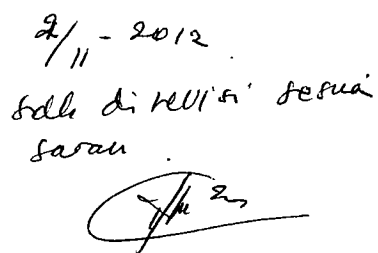 2/11 - 2012
sdh direvisi sesuai
saran